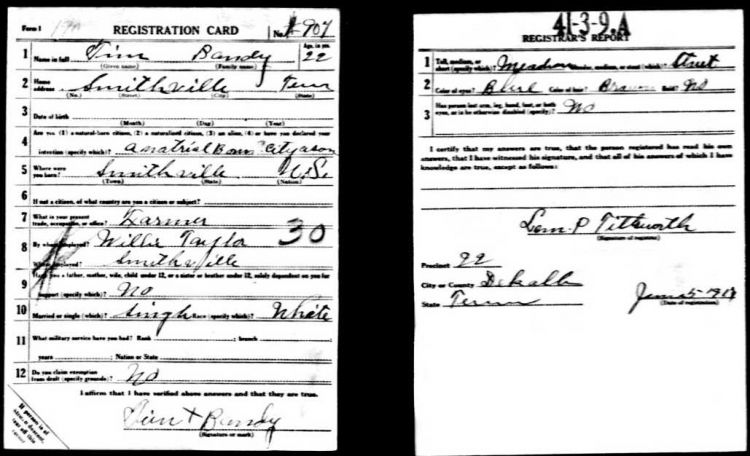 Form 1
REGISTRATION CARD
No. 907
1 Name in full Jim Bandy Age, in yrs. 22
(Given name) (Family name)
2 Home address Smithville Tenn
(No.) (Street) (City) (State)
3 Date of birth
(Month) (Day) (Year)
4 Are you (1) a natural-born citizen, (2) a naturalized citizen, (3) an alien, (4) or have you declared your
intention (specify which)? a natrial Born
5 Where were you born? Smithville U.S.
(Town) (State) (Nation)
6 If not a citizen, of what country are you a citizen or subject?
7 What is your present trade, occupation, or office? Farmer
30
8 By whom employed? Willie Taylor
Where employed? Smithville
9 Have you a father, mother, wife, child under 12, or a sister or brother under 12, solely dependent on you for
support (specify which)? No
10 Married or single (which)? Single Race (specify which)? White
11 What military service have you had? Rank ; branch
years ; Nation or State
12 Do you claim exemption from draft (specify grounds)? No
I affirm that I have verified above answers and that they are true.
Jim + Bandy
(Signature or mark)
If person is of African descent, tear off this corner
41-3-9.A
REGISTRAR'S REPORT
1 Tall, medium, or short (specify which)? Medium Slender, medium, or stout (which)? Stout
2 Color of eyes? Blue Color of hair? Brown Bald? No
3 Has person lost arm, leg, hand, foot, or both
eyes, or is he otherwise disabled (specify)? No
I certify that my answers are true, that the person registered has read his own
answers, that I have witnessed his signature, and that all of his answers of which I have
knowledge are true, except as follows:
Lem. P Tittsworth
(Signature of registrar)
Precinct 22
City or County Dekalb
State Tenn
June 5 1917
(Date of registration)